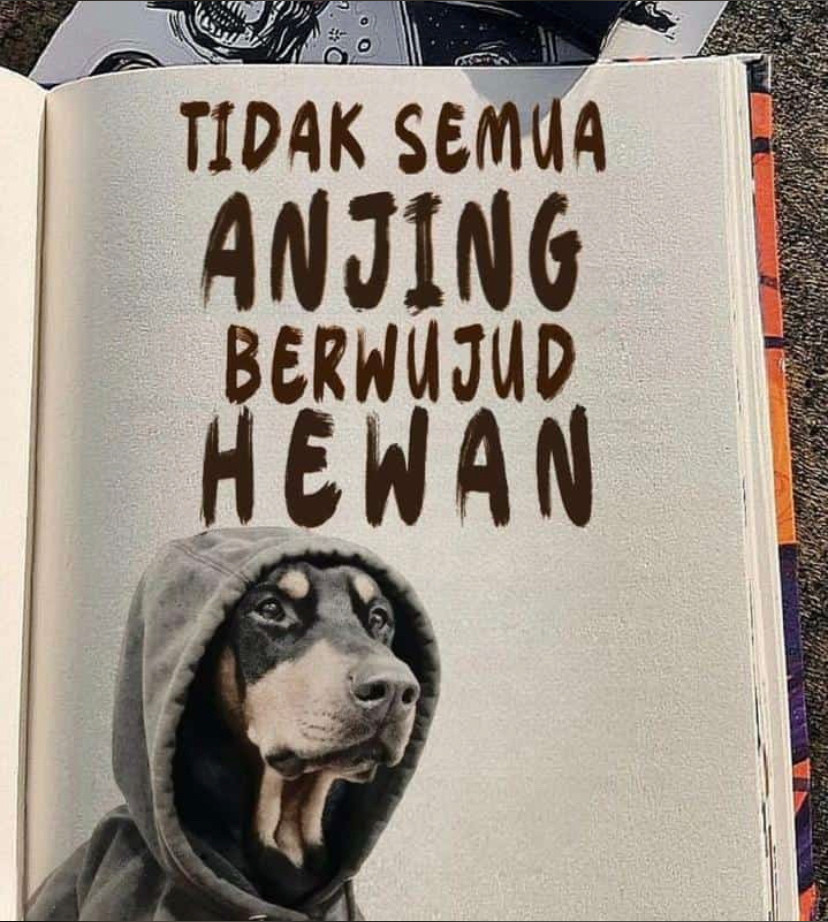 TIDAK SEMUA
ANJING
BERWUJUD
HEWAN